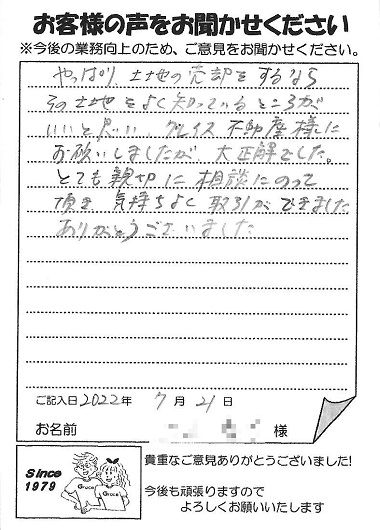 お客様の声をお聞かせください
※今後の業務向上のため、ご意見をお聞かせください。
やっぱり 土地の売却をするなら
その土地をよく知っているところが
いいと思い グレイス不動産様に
お願いしましたが 大正解でした。
とても親切に相談にのって
頂き 気持ちよく取引ができました
ありがとうございました
ご記入日2022年 7月21日
お名前 様
Since
1979
Grace
Grace
貴重なご意見ありがとうございました!
今後も頑張りますので
よろしくお願いいたします